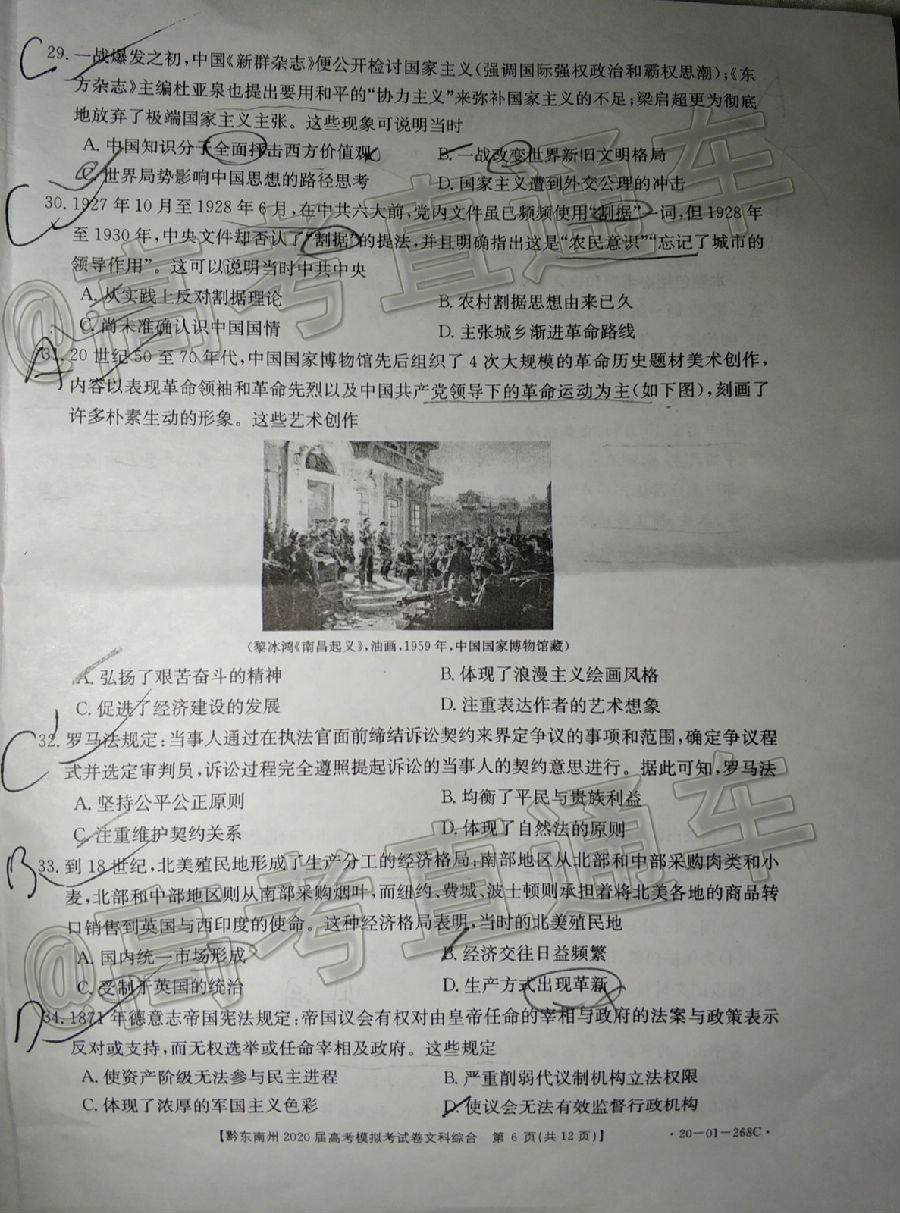 C 29. 一战爆发之初,中国《新群杂志》便公开检讨国家主义(强调国际强权政治和霸权思潮);《东
方杂志》主编杜亚泉也提出要用和平的“协力主义”来弥补国家主义的不足;梁启超更为彻底
地放弃了极端国家主义主张。这些现象可说明当时
A. 中国知识分子全面抨击西方价值观 B. 一战改变世界新旧文明格局
C. 世界局势影响中国思想的路径思考 D. 国家主义遭到外交公理的冲击
C 30. 1927年10月至1928年6月,在中共六大前,党内文件虽已频频使用“割据”一词,但1928年
至1930年,中央文件却否认了“割据”的提法,并且明确指出这是“农民意识”“忘记了城市的
领导作用”。这可以说明当时中共中央
A. 从实践上反对割据理论 B. 农村割据思想由来已久
C. 尚未准确认识中国国情 D. 主张城乡渐进革命路线
A 31. 20世纪50至70年代,中国国家博物馆先后组织了4次大规模的革命历史题材美术创作,
内容以表现革命领袖和革命先烈以及中国共产党领导下的革命运动为主(如下图),刻画了
许多朴素生动的形象。这些艺术创作
(黎冰鸿《南昌起义》,油画,1959年,中国国家博物馆藏)
A. 弘扬了艰苦奋斗的精神 B. 体现了浪漫主义绘画风格
C. 促进了经济建设的发展 D. 注重表达作者的艺术想象
C 32. 罗马法规定:当事人通过在执法官面前缔结诉讼契约来界定争议的事项和范围,确定争议程
式并选定审判员,诉讼过程完全遵照提起诉讼的当事人的契约意思进行。据此可知,罗马法
A. 坚持公平公正原则 B. 均衡了平民与贵族利益
C. 注重维护契约关系 D. 体现了自然法的原则
B 33. 到18世纪,北美殖民地形成了生产分工的经济格局:南部地区从北部和中部采购肉类和小
麦,北部和中部地区则从南部采购烟叶,而纽约、费城、波士顿则承担着将北美各地的商品转
口销售到英国与西印度的使命。这种经济格局表明,当时的北美殖民地
A. 国内统一市场形成 B. 经济交往日益频繁
C. 受制于英国的统治 D. 生产方式出现革新
D 34. 1871年德意志帝国宪法规定:帝国议会有权对由皇帝任命的宰相与政府的法案与政策表示
反对或支持,而无权选举或任命宰相及政府。这些规定
A. 使资产阶级无法参与民主进程 B. 严重削弱代议制机构立法权限
C. 体现了浓厚的军国主义色彩 D. 使议会无法有效监督行政机构
【黔东南州2020届高考模拟考试卷文科综合 第6页(共12页)】 ·20-01-268C·
@高考直通车
@高考直通车